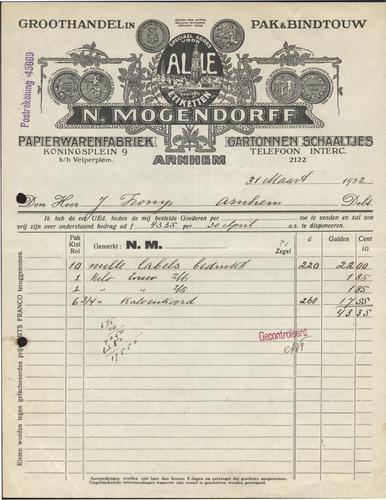 GROOTHANDEL IN PAK & BINDTOUW
SPECIAAL ADRES
VOOR
ALLE
SOORTEN
ETIKETTEN
Postrekening 45669
N. MOGENDORFF
PAPIERWARENFABRIEK GARTONNEN SCHAALTJES
KONINGSPLEIN 9 TELEFOON INTERC.
b/h Velperplein. ARNHEM 2122
31 Maart 1922
Den Heer J Tromp Arnhem Debet
Ik heb de eer UEd. heden de mij bestelde Goederen per te zenden en zal zoo
vrij zijn over onderstaand bedrag ad f 43.35 per 30 April a.s. te disponeeren.
Pak Kist Rol Gemerkt: N. M. Zegel Cents p/ Gulden Cent 10
10 mille labels bedrukt 220 22 00
1 kilo touw 2/6 1 85
1 " " 2/5 1 85
6 3/4 " Kalvenkoord 260 17 55
43 35
675
260
17550
Gecontroleerd
Kisten worden tegen gefactureerden prijs MITS FRANCO teruggenomen.
Aanmerkingen worden niet later dan binnen 8 dagen na ontvangst der goederen aangenomen.
Ongefrankeerde retourzendingen wanneer niet vooraf is geschreven worden geweigerd.